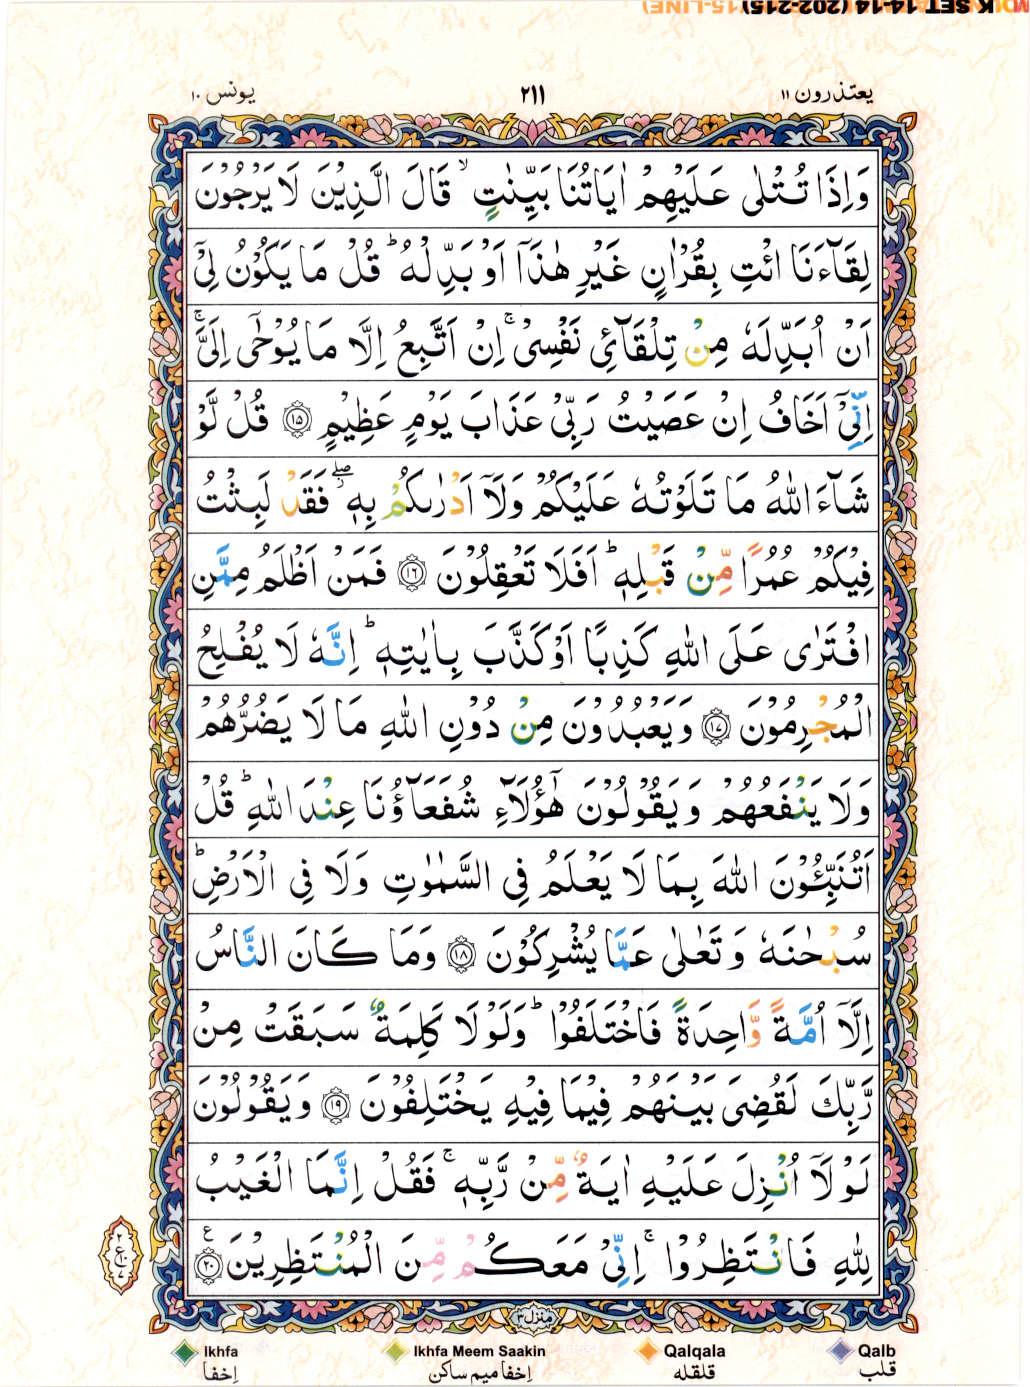 K SET 14-14 (202-215) (15-LINE)
يعتذرون ١١
٢١١
يونس ١٠
وَاِذَا تُتْلٰى عَلَيْهِمْ اٰيَاتُنَا بَيِّنٰتٍ ۙ قَالَ الَّذِيْنَ لَا يَرْجُوْنَ
لِقَآءَنَا ائْتِ بِقُرْاٰنٍ غَيْرِ هٰذَآ اَوْ بَدِّلْهُ ؕ قُلْ مَا يَكُوْنُ لِيْٓ
اَنْ اُبَدِّلَهٗ مِنْ تِلْقَآئِ نَفْسِيْ ۚ اِنْ اَتَّبِعُ اِلَّا مَا يُوْحٰٓى اِلَيَّ ۚ
اِنِّيْٓ اَخَافُ اِنْ عَصَيْتُ رَبِّيْ عَذَابَ يَوْمٍ عَظِيْمٍ ۝١٥ قُلْ لَّوْ
شَآءَ اللّٰهُ مَا تَلَوْتُهٗ عَلَيْكُمْ وَلَآ اَدْرٰىكُمْ بِهٖ ۖ فَقَدْ لَبِثْتُ
فِيْكُمْ عُمُرًا مِّنْ قَبْلِهٖ ؕ اَفَلَا تَعْقِلُوْنَ ۝١٦ فَمَنْ اَظْلَمُ مِمَّنِ
افْتَرٰى عَلَى اللّٰهِ كَذِبًا اَوْ كَذَّبَ بِاٰيٰتِهٖ ؕ اِنَّهٗ لَا يُفْلِحُ
الْمُجْرِمُوْنَ ۝١٧ وَيَعْبُدُوْنَ مِنْ دُوْنِ اللّٰهِ مَا لَا يَضُرُّهُمْ
وَلَا يَنْفَعُهُمْ وَيَقُوْلُوْنَ هٰٓؤُلَآءِ شُفَعَآؤُنَا عِنْدَ اللّٰهِ ؕ قُلْ
اَتُنَبِّـُٔوْنَ اللّٰهَ بِمَا لَا يَعْلَمُ فِي السَّمٰوٰتِ وَلَا فِي الْاَرْضِ ؕ
سُبْحٰنَهٗ وَتَعٰلٰى عَمَّا يُشْرِكُوْنَ ۝١٨ وَمَا كَانَ النَّاسُ
اِلَّآ اُمَّةً وَّاحِدَةً فَاخْتَلَفُوْا ؕ وَلَوْلَا كَلِمَةٌ سَبَقَتْ مِنْ
رَّبِّكَ لَقُضِيَ بَيْنَهُمْ فِيْمَا فِيْهِ يَخْتَلِفُوْنَ ۝١٩ وَيَقُوْلُوْنَ
لَوْلَآ اُنْزِلَ عَلَيْهِ اٰيَةٌ مِّنْ رَّبِّهٖ ۚ فَقُلْ اِنَّمَا الْغَيْبُ
لِلّٰهِ فَانْتَظِرُوْا ۚ اِنِّيْ مَعَكُمْ مِّنَ الْمُنْتَظِرِيْنَ ۝٢٠ ع
٢
ع ١٠
٧
منزل ٣
Ikhfa
Ikhfa Meem Saakin
Qalqala
Qalb
اِخفا
اِخفا ميم ساكن
قلقله
قلب